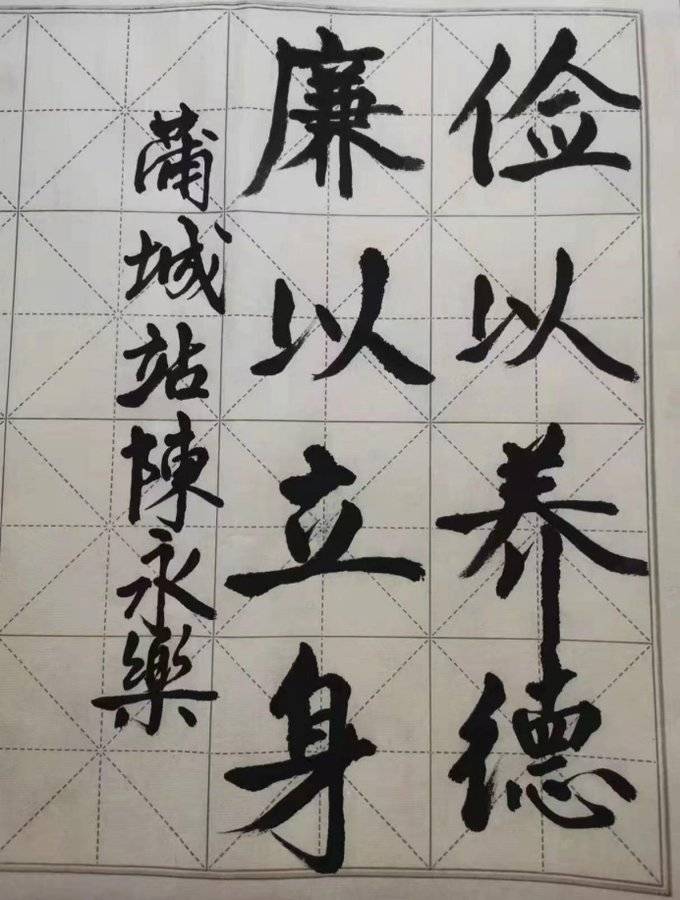 俭以养德
廉以立身
蒲城站陳永樂